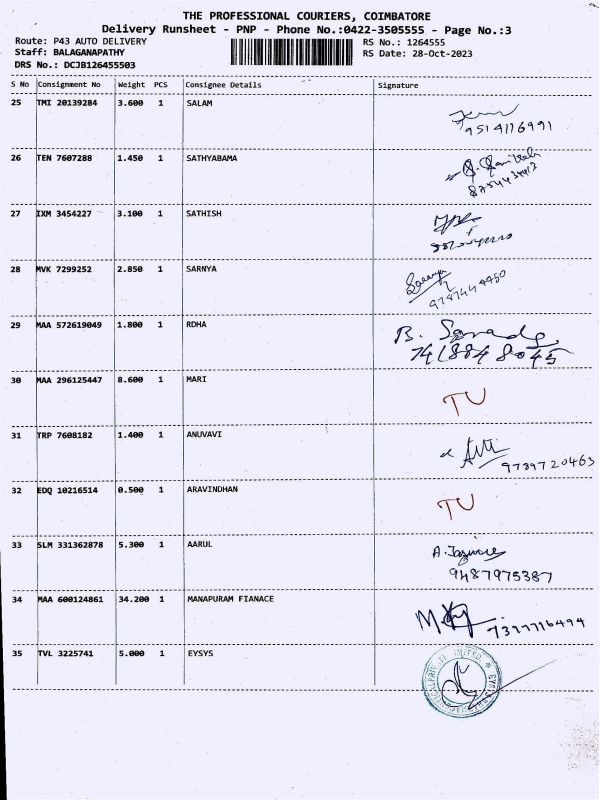 THE PROFESSIONAL COURIERS, COIMBATORE
Delivery Runsheet - PNP - Phone No.:0422-3505555 - Page No.:3
Route: P43 AUTO DELIVERY RS No.: 1264555
Staff: BALAGANAPATHY RS Date: 28-Oct-2023
DRS No.: DCJB126455503
S No Consignment No Weight PCS Consignee Details Signature
25 TMI 20139284 3.600 1 SALAM
9514116991
26 TEN 7607288 1.450 1 SATHYABAMA
27 IXM 3454227 3.100 1 SATHISH
28 MVK 7299252 2.850 1 SARNYA
29 MAA 572619049 1.800 1 RDHA
B.
7418848045
30 MAA 296125447 8.600 1 MARI
TU
31 TRP 7608182 1.400 1 ANUVAVI
9789720463
32 EDQ 10216514 0.500 1 ARAVINDHAN
TU
33 SLM 331362878 5.300 1 AARUL
A.
9487975387
34 MAA 600124861 34.200 1 MANAPURAM FIANACE
35 TVL 3225741 5.000 1 EYSYS